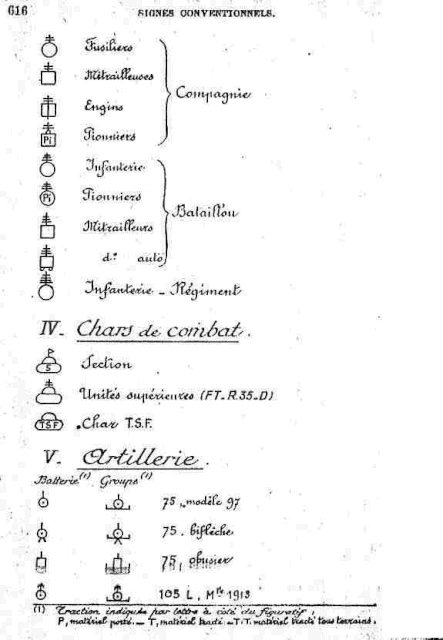 616
SIGNES CONVENTIONNELS.
Fusiliers
Mitrailleuses
Engins
Pionniers
Compagnie
Pi
Infanterie
Pionniers
Pi
Mitrailleurs
d.º auto
Bataillon
Infanterie - Régiment
IV_ Chars de combat.
Section
S
Unités supérieures (FT_R.35_D)
Char T.S.F.
TSF
V_ Artillerie.
Batterie(1) Groups(1)
75, modèle 97
75. biflèche
75, obusier
105 L, Mle 1913
(1) Traction indiquée par lettre à côté du figuratif;
P, matériel porté._ T, matériel tracté._T.T. matériel tracté tous terrains.